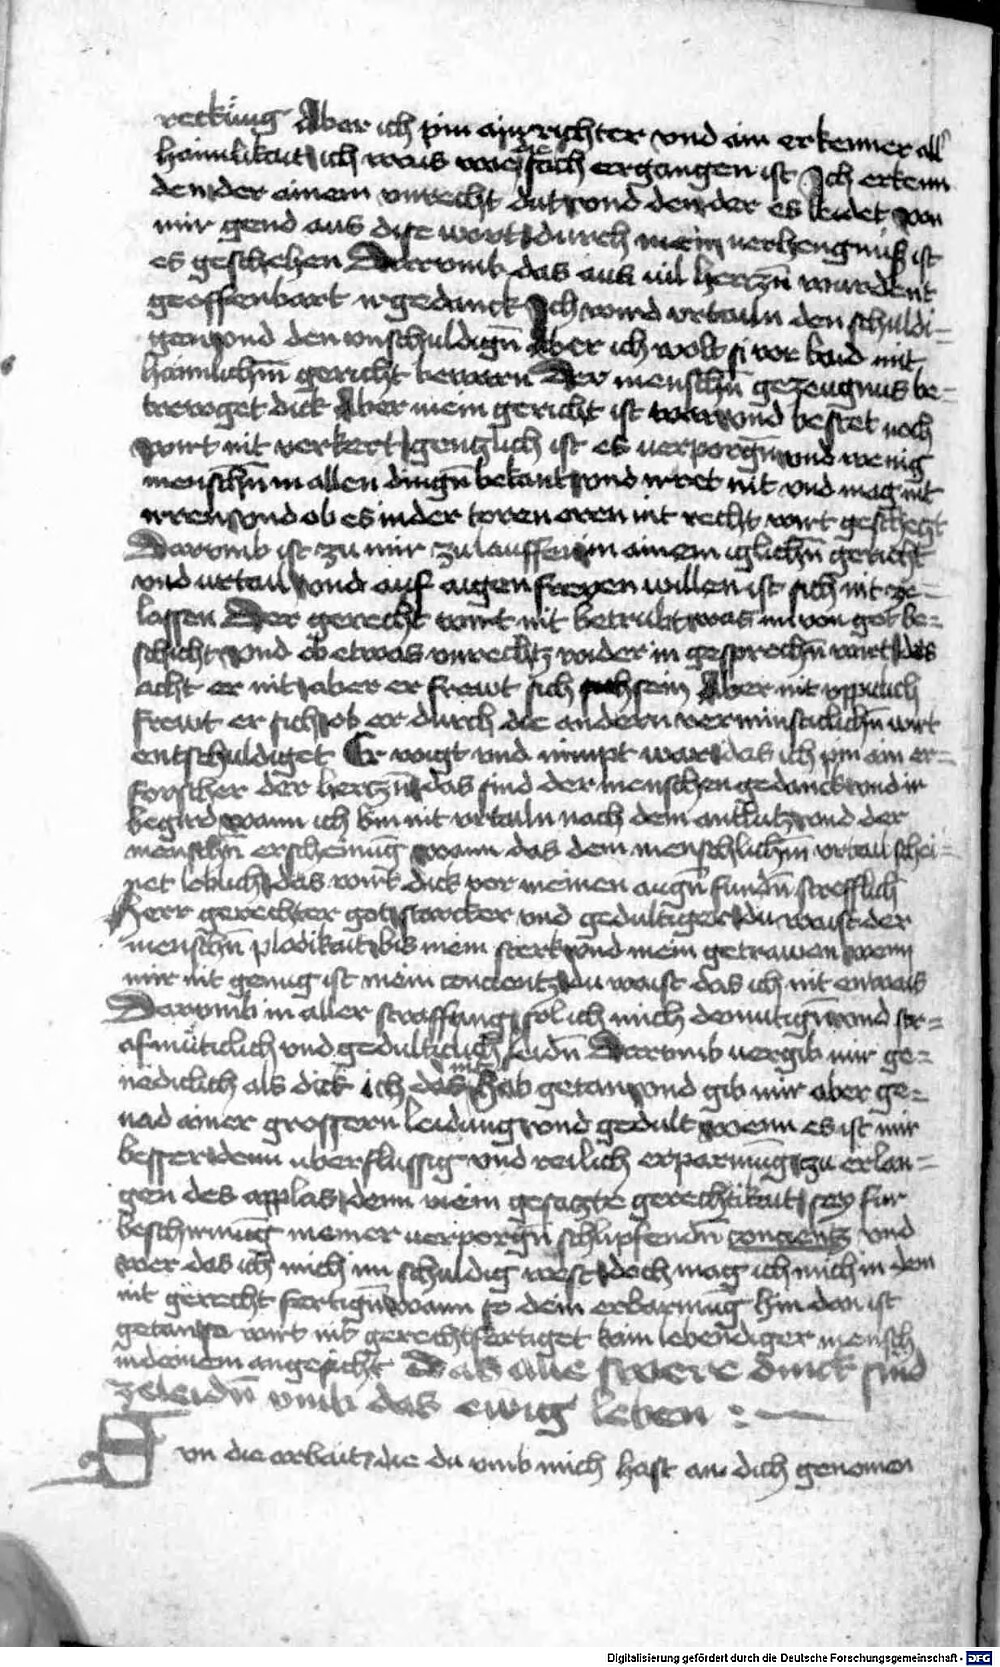 reckūng Aber ich pin ain richter vnd ain erkenner all
haimlikait ich wais wie die sach ergangen ist Ich erkenn
den der ainem vnrecht dut vnd den der es leidet von
mir gend aus dise wort durch mein verhengnuß ist
es geschehen Darvmb das aus vil hertzn̄ wurdent
geoffenbart ir gedanck Ich wird vrtailn den schuldi=
gen vnd den vnschuldign̄ Aber ich wolt si vor baid mit
haimlichm̄ gericht bewarn Der menschn̄ gezeugnus be=
trewget dick Aber mein gericht ist war vnd bestet noch
wirt nit verkert gentzlich ist es verporgn̄ vnd wenig
menschn̄ in allen dingn̄ bekant vnd irret nit vnd mag nit
irren vnd ob es in der toren oren nit recht wirt geschetzt
Darvmb ist zu mir zu lauffen in ainem iglichn̄ gericht
vnd vrtail vnd auf aigen freyen willen ist sich nit ze=
lassen Der gerecht wirt nit betrubt was im von got be=
schicht vnd ob etwas vnrechtz wider in gesprochn̄ wirt des
acht er nit aber er frewt sich sein Aber nit vppiclich
frewt er sich ob er durch die andern verninfticlichn̄ wirt
entschuldiget Er wigt vnd nimpt war das ich pin ain er=
forscher der hertzn̄ das sind der menschen gedanck vnd ir
begird wann ich bin nit vrtailn nach dem antlutz vnd der
menschn̄ erscheinūg wann das dem menschlichm̄ vrtail schei=
net leblich das wirt dick vor meinen augn̄ fundn̄ strefflich
Herr gerechter got starcker vnd gedultiger du waist der
menschn̄ plodikait bis mein sterk vnd mein getrawen wenn
mir nit genug ist mein concientz du waist das ich nit enwais
Darvmb in aller straffung sol ich mich demutign̄ vnd
senfmüticlich vnd gedulticlich leidn̄ Darvmb vergib mir ge=
nediclich als dick ich das nit hab getan vnd gib mir aber ge=
nad ainer grossern leidung vnd gedult wenn es ist mir
besser denn vberflussig vnd reilich erparmūg zu erlan=
gen des applas denn mein gesagte gerechtikait sey für
beschirmūg meiner verporgn̄ schlupfendn̄ concientz vnd
wer das ich mich vnschuldig west doch mag ich mich in dem
nit gerecht fertign̄ wann so dein erbarmūg hin dan ist
getan so wirt nit gerechtfertiget kain lebendiger mensch
in deinem angesicht Das alle swere dinck sind
zeleidn̄ vmb das ewig leben
Sun die arbait die du vmb mich hast an dich genomen
Digitalisierung gefördert durch die Deutsche Forschungsgemeinschaft - DFG